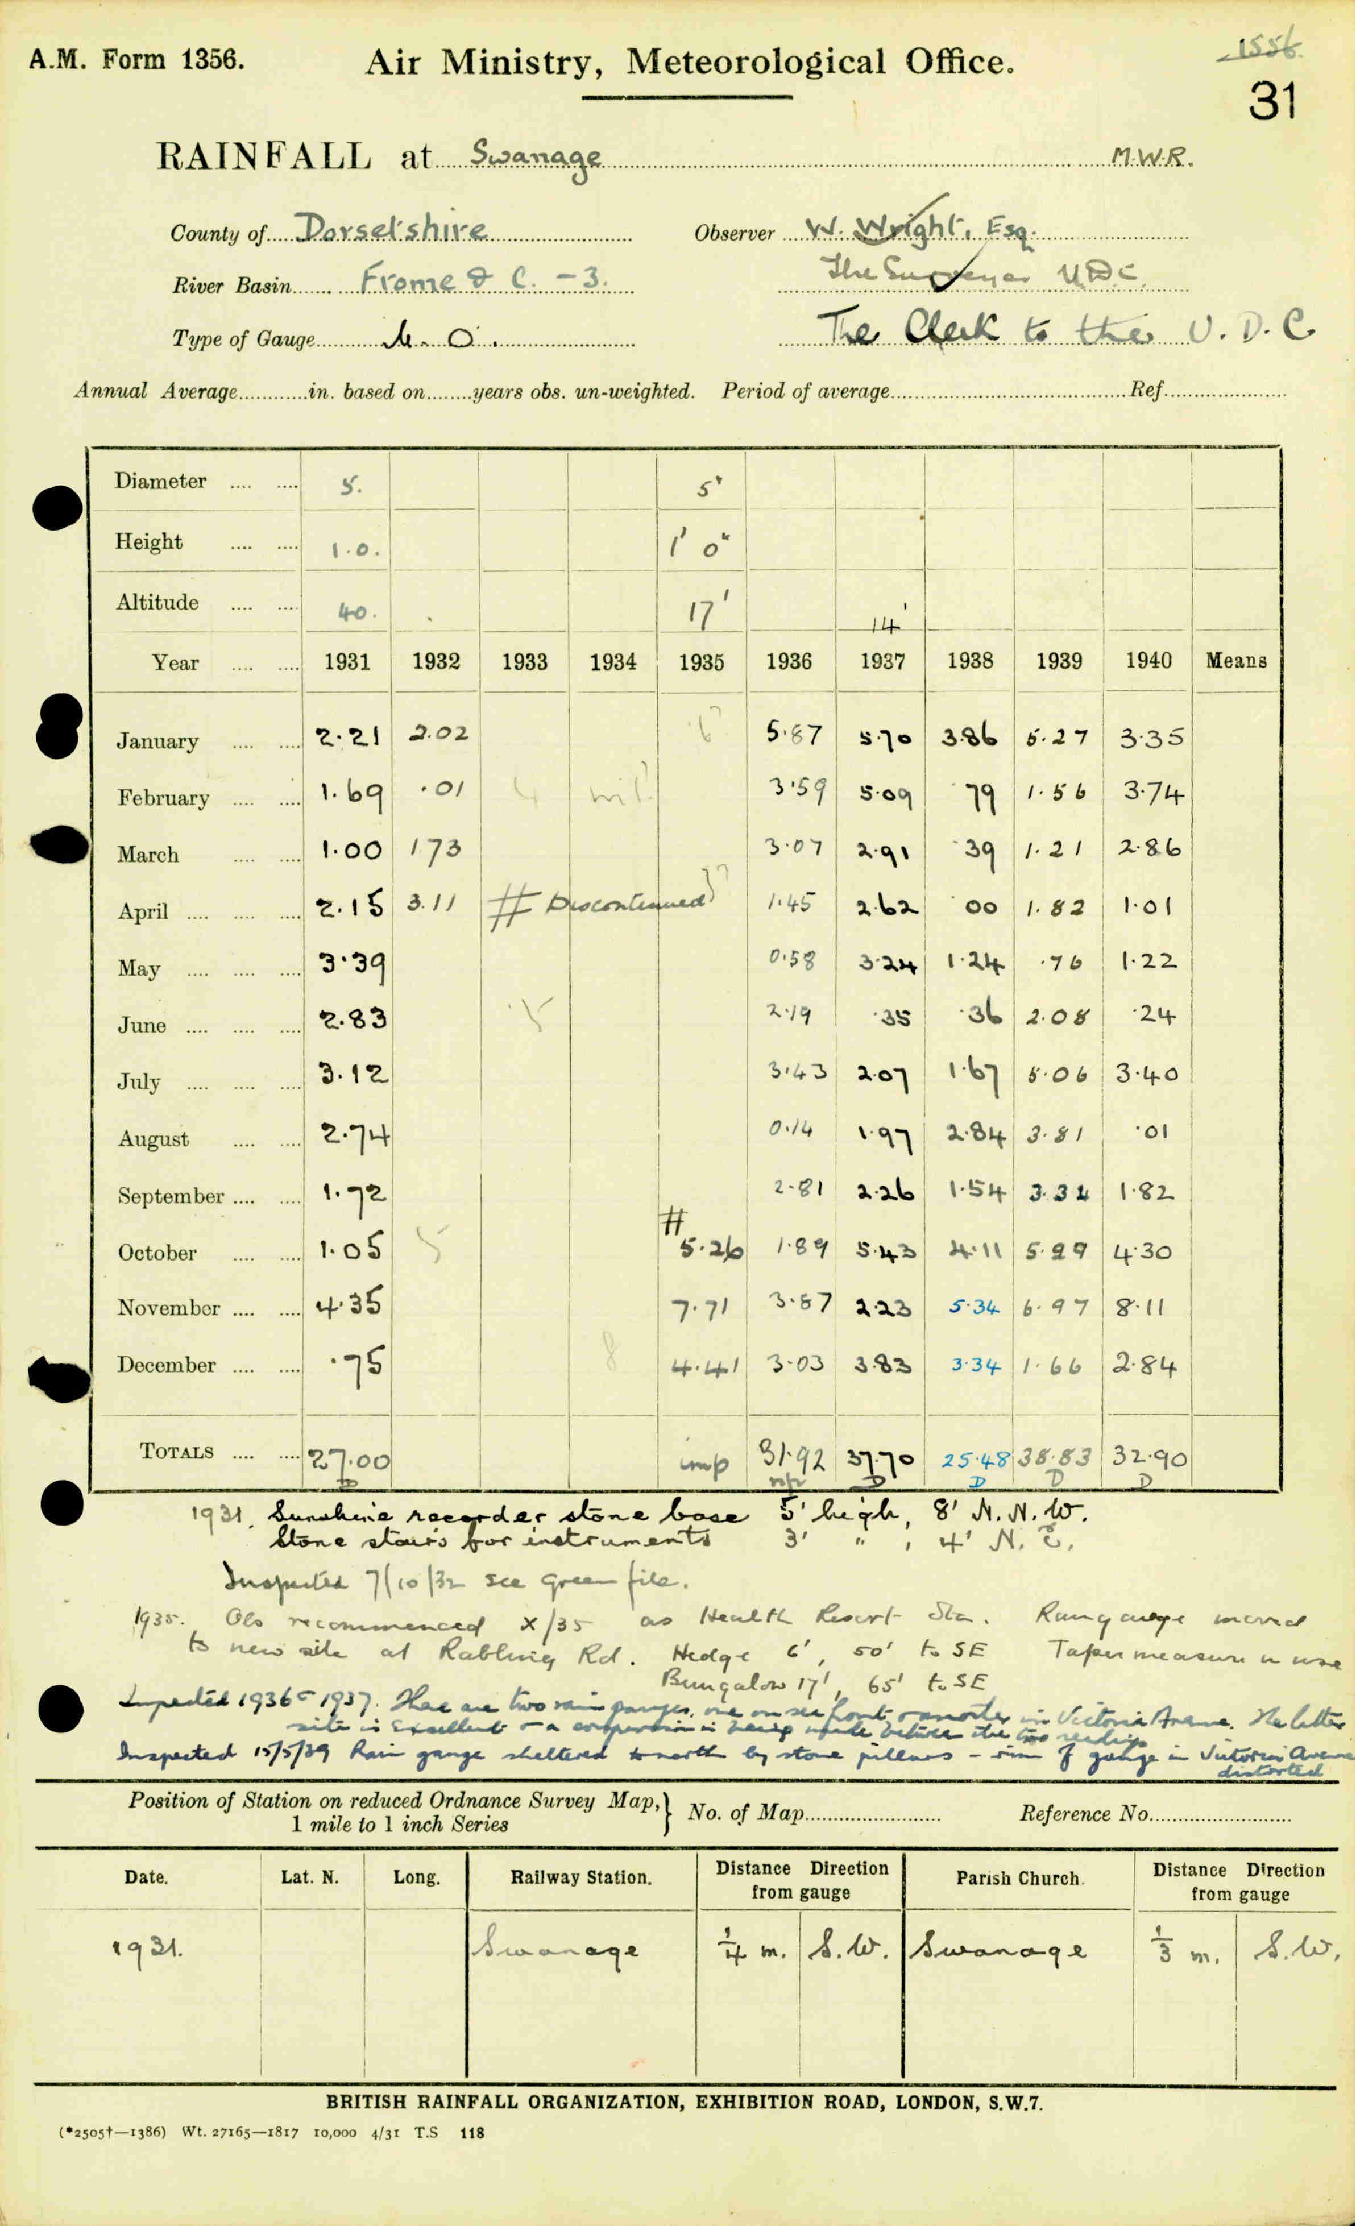 1556
A.M. Form 1356. Air Ministry, Meteorological Office.
31
RAINFALL at Swanage M.W.R.
County of Dorsetshire Observer W. Wright, Esq.
River Basin Frome & C. - 3. The Surveyor U.D.C.
Type of Gauge M. O. The Clerk to the U. D. C
Annual Average in. based on years obs. un-weighted. Period of average Ref.
Diameter 5. 5"
Height 1.0. 1' 0"
Altitude 40. 17' 14'
Year 1931 1932 1933 1934 1935 1936 1937 1938 1939 1940 Means
January 2.21 2.02 5.87 5.70 3.86 5.27 3.35
February 1.69 .01 3.59 5.09 .79 1.56 3.74
March 1.00 1.73 3.07 2.91 .39 1.21 2.86
April 2.15 3.11 # Discontinued 1.45 2.62 .00 1.82 1.01
May 3.39 0.58 3.24 1.24 .76 1.22
June 2.83 2.19 .35 .36 2.08 .24
July 3.12 3.43 2.07 1.67 5.06 3.40
August 2.74 0.14 1.97 2.84 3.81 .01
September 1.72 2.81 2.26 1.54 3.34 1.82
#
October 1.05 5.26 1.89 5.43 4.11 5.99 4.30
November 4.35 7.71 3.87 2.23 5.34 6.97 8.11
December .75 4.41 3.03 3.83 3.34 1.66 2.84
TOTALS 27.00 imp 31.92 37.70 25.48 38.83 32.90
D D D D D
1931. Sunshine recorder stone base 5' high, 8' N.N.W.
Stone stairs for instruments 3' " , 4' N.E.
Inspected 7/10/32 see green file.
1935. Obs recommenced X/35 as Health Resort Stn. Raingauge moved
to new site at Rabling Rd. Hedge 6', 50' to SE Taper measure in use
Bungalow 17', 65' to SE
Inspected 1936 & 1937. There are two rain gauges, one on sea front & another in Victoria Avenue. The latter
site is excellent & a comparison is being made between the two readings
Inspected 15/5/39 Rain gauge sheltered to north by stone pillars - rim of gauge in Victoria Avenue
distorted
Position of Station on reduced Ordnance Survey Map, } No. of Map Reference No.
1 mile to 1 inch Series
Date. Lat. N. Long. Railway Station. Distance Direction from gauge Parish Church. Distance Direction from gauge
1931. Swanage 1/4 m. S.W. Swanage 1/3 m. S.W.
BRITISH RAINFALL ORGANIZATION, EXHIBITION ROAD, LONDON, S.W.7.
(*2505†—1386) Wt. 27165—1817 10,000 4/31 T.S 118